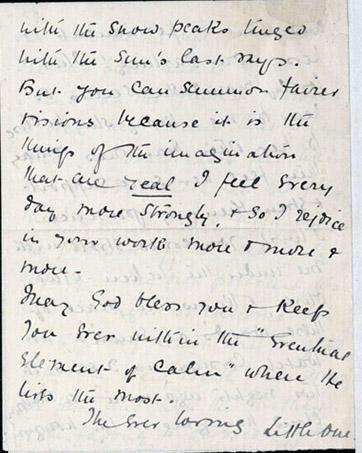 with the snow peaks tinged
with the Sun's last rays.
But you can summon fairer
visions because it is the
things of the imagination
that are real I feel every
day more strongly, & so I rejoice
in your work more & more &
more.
May God bless you & keep
you ever within the "Eventual
Element of Calm" where He
lives the most.
The Ever loving Little One